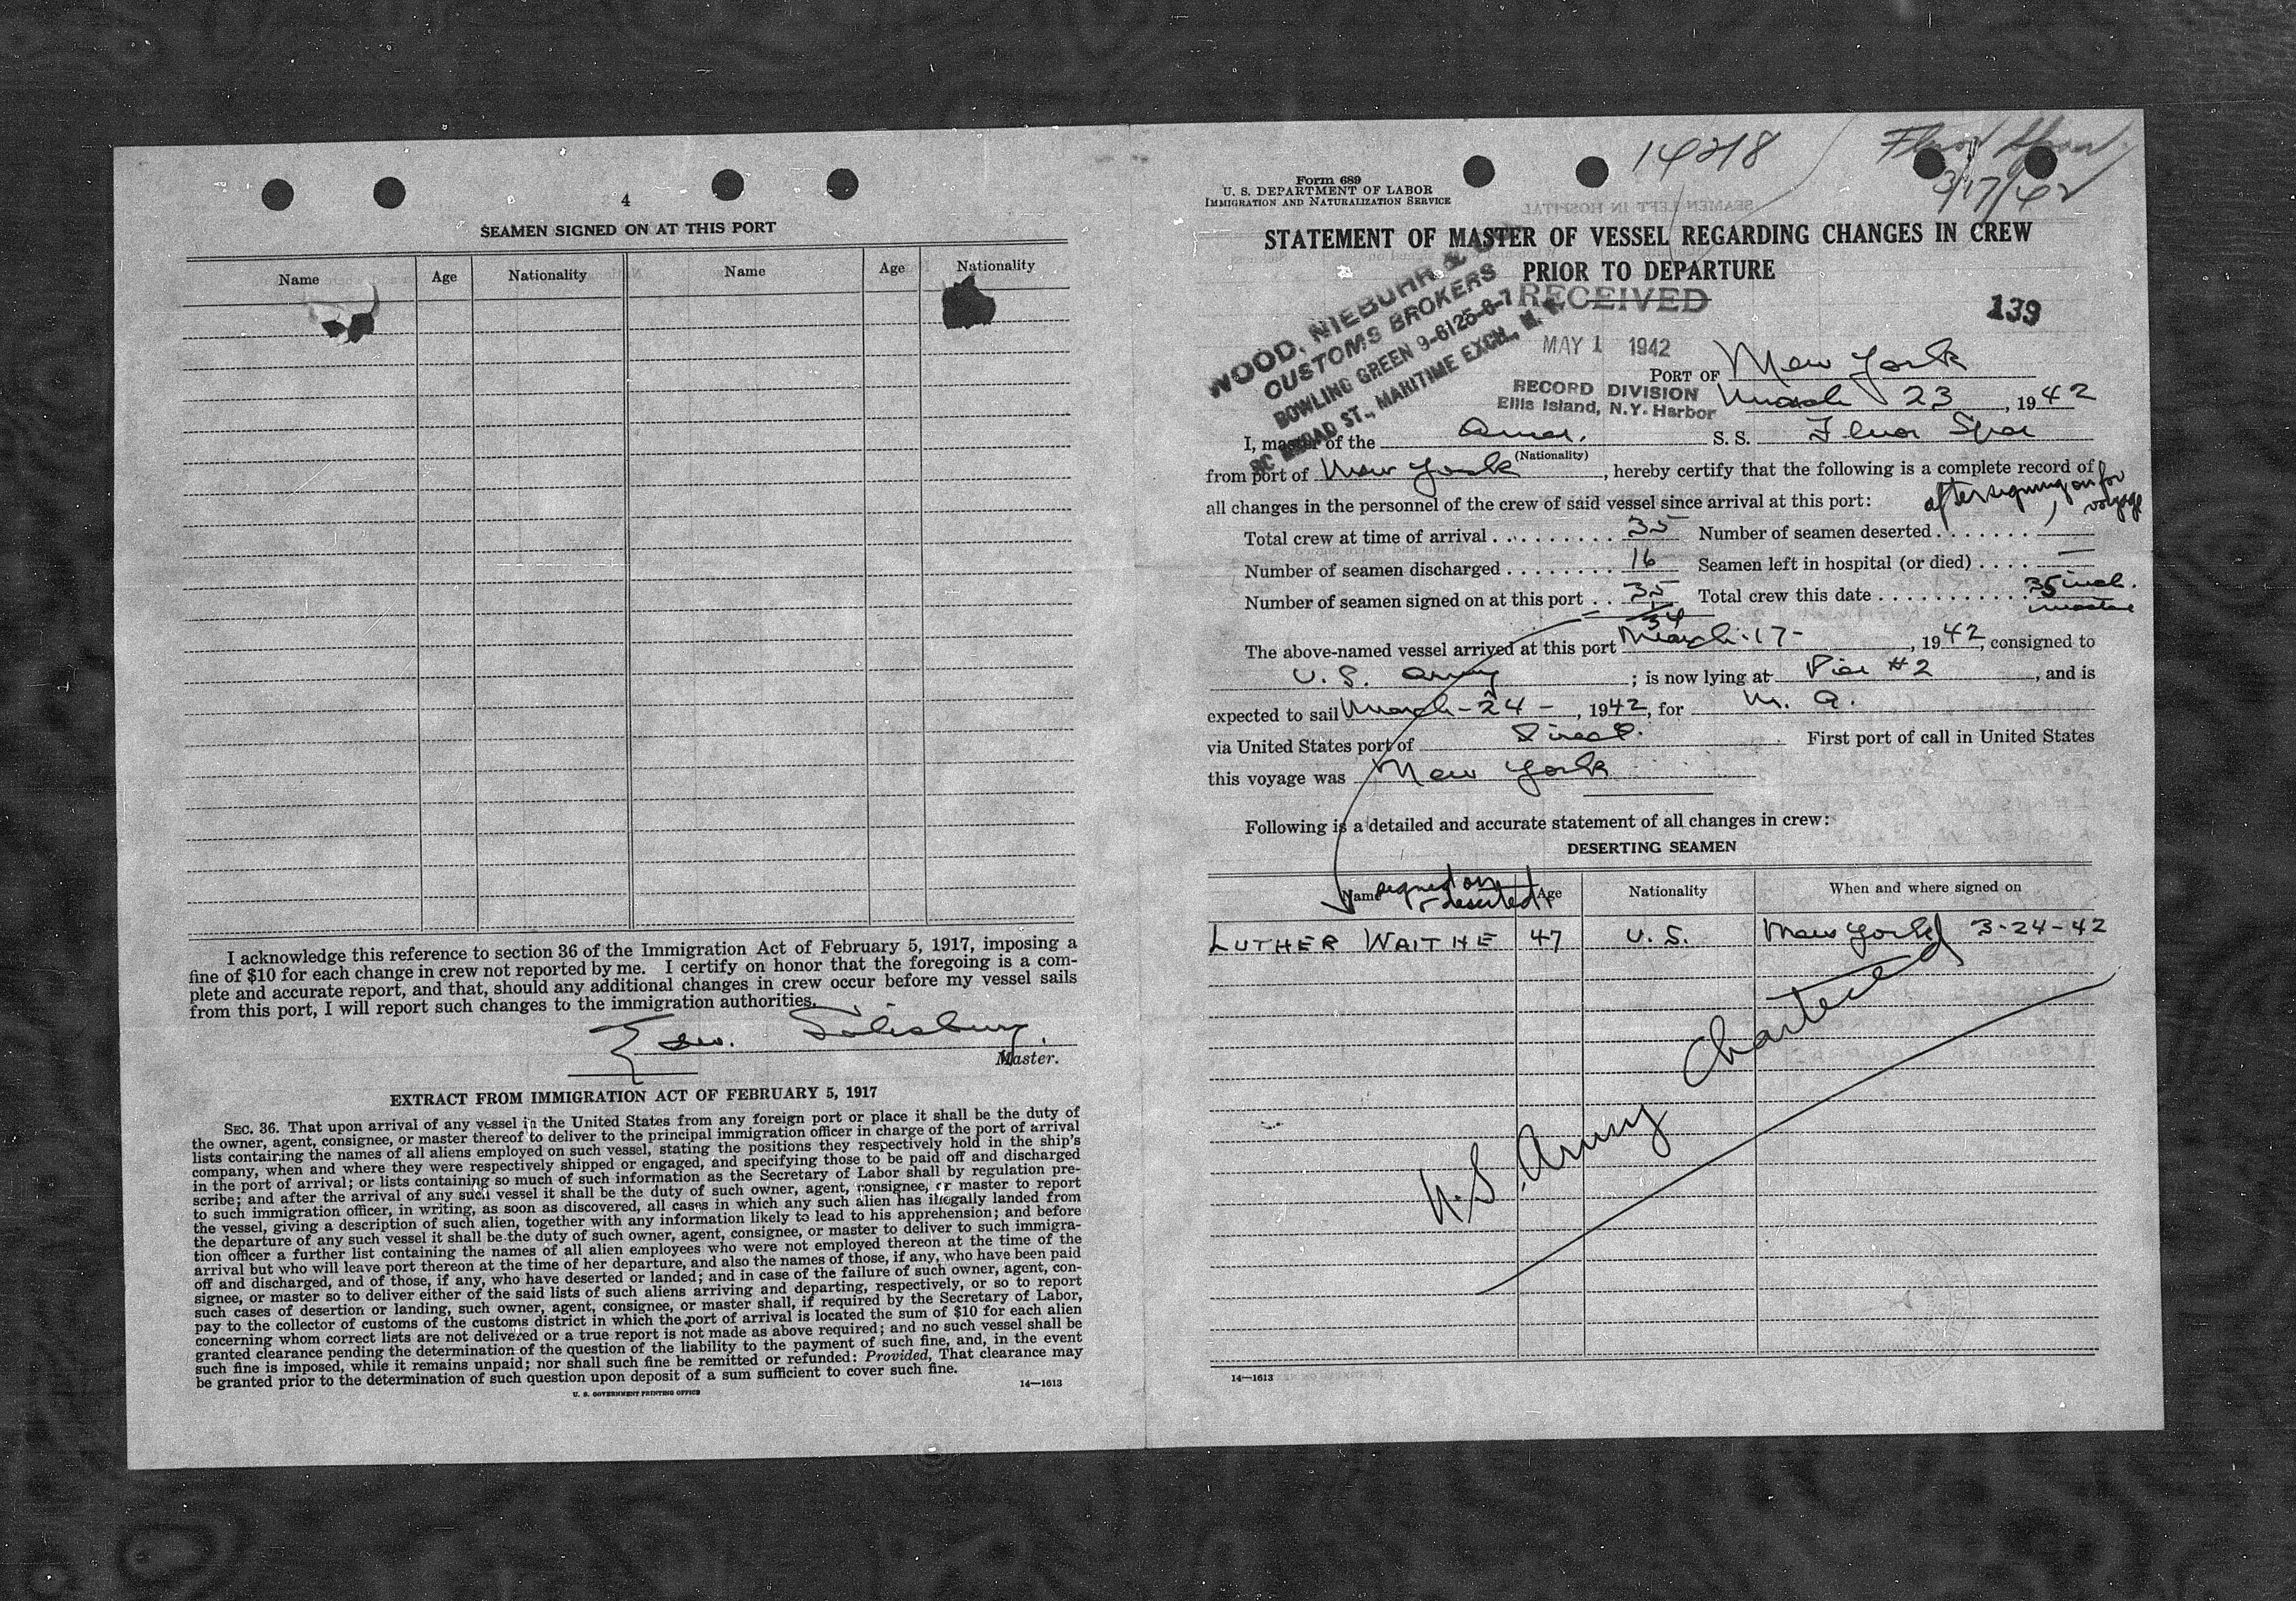 4
SEAMEN SIGNED ON AT THIS PORT
Name Age Nationality Name Age Nationality
I acknowledge this reference to section 36 of the Immigration Act of February 5, 1917, imposing a
fine of $10 for each change in crew not reported by me. I certify on honor that the foregoing is a com-
plete and accurate report, and that, should any additional changes in crew occur before my vessel sails
from this port, I will report such changes to the immigration authorities.
Edw. Salisbury.
Master.
EXTRACT FROM IMMIGRATION ACT OF FEBRUARY 5, 1917
SEC. 36. That upon arrival of any vessel in the United States from any foreign port or place it shall be the duty of
the owner, agent, consignee, or master thereof to deliver to the principal immigration officer in charge of the port of arrival
lists containing the names of all aliens employed on such vessel, stating the positions they respectively hold in the ship's
company, when and where they were respectively shipped or engaged, and specifying those to be paid off and discharged
in the port of arrival; or lists containing so much of such information as the Secretary of Labor shall by regulation pre-
scribe; and after the arrival of any such vessel it shall be the duty of such owner, agent, consignee, or master to report
to such immigration officer, in writing, as soon as discovered, all cases in which any such alien has illegally landed from
the vessel, giving a description of such alien, together with any information likely to lead to his apprehension; and before
the departure of any such vessel it shall be the duty of such owner, agent, consignee, or master to deliver to such immigra-
tion officer a further list containing the names of all alien employees who were not employed thereon at the time of the
arrival but who will leave port thereon at the time of her departure, and also the names of those, if any, who have been paid
off and discharged, and of those, if any, who have deserted or landed; and in case of the failure of such owner, agent, con-
signee, or master so to deliver either of the said lists of such aliens arriving and departing, respectively, or so to report
such cases of desertion or landing, such owner, agent, consignee, or master shall, if required by the Secretary of Labor,
pay to the collector of customs of the customs district in which the port of arrival is located the sum of $10 for each alien
concerning whom correct lists are not delivered or a true report is not made as above required; and no such vessel shall be
granted clearance pending the determination of the question of the liability to the payment of such fine, and, in the event
such fine is imposed, while it remains unpaid; nor shall such fine be remitted or refunded: Provided, That clearance may
be granted prior to the determination of such question upon deposit of a sum sufficient to cover such fine.
U. S. GOVERNMENT PRINTING OFFICE 14—1613
14218 Fluor Spar
3/17/42
Form 689
U. S. DEPARTMENT OF LABOR
IMMIGRATION AND NATURALIZATION SERVICE
STATEMENT OF MASTER OF VESSEL REGARDING CHANGES IN CREW
PRIOR TO DEPARTURE
WOOD, NIEBUHR &
CUSTOMS BROKERS
BOWLING GREEN 9-6125-6-7
BROAD ST., MARITIME EXCH., N. Y.
RECEIVED
MAY 1 1942
RECORD DIVISION
Ellis Island, N.Y. Harbor
139
PORT OF New York
March 23, 1942
I, master of the Amer. S. S. Fluor Spar
(Nationality)
from port of New York, hereby certify that the following is a complete record of
all changes in the personnel of the crew of said vessel since arrival at this port: after signing on for voyage
Total crew at time of arrival . . . . 35 Number of seamen deserted . . . . 1
Number of seamen discharged . . . . 16 Seamen left in hospital (or died) . . . . —
Number of seamen signed on at this port . . 35 Total crew this date . . . . 35 incl. master
1
34
The above-named vessel arrived at this port March-17-, 1942, consigned to
U. S. Army; is now lying at Pier #2, and is
expected to sail March-24-, 1942, for
via United States port of Direct. First port of call in United States
this voyage was New York
Following is a detailed and accurate statement of all changes in crew:
DESERTING SEAMEN
Name signed on & deserted Age Nationality When and where signed on
LUTHER WAITHE 47 U. S. New York 3-24-42
U.S. Army Chartered
14—1613